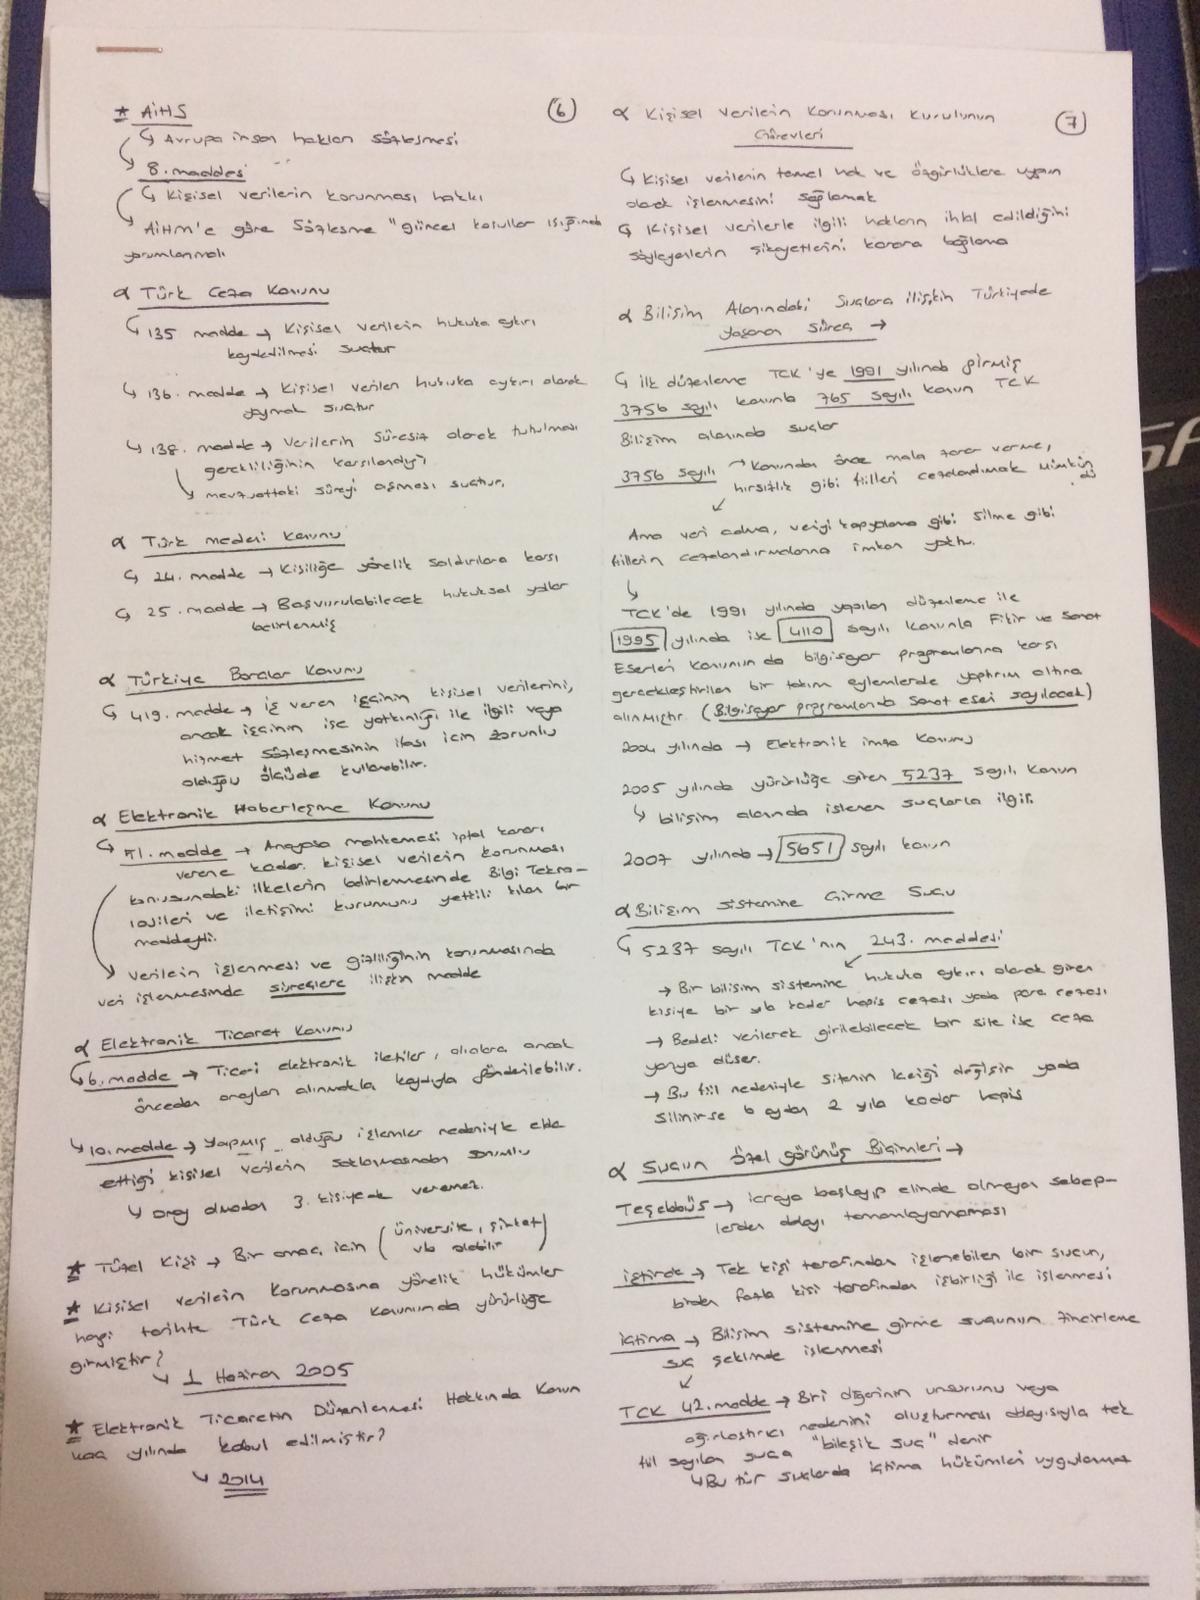 * AiHS
↳ Avrupa insan hakları sözleşmesi
↳ 8. maddesi
↳ Kişisel verilerin korunması hakkı
↳ AiHM'e göre Sözleşme "güncel koşullar ışığında
yorumlanmalı
α Türk Ceza Kanunu
↳ 135 madde → Kişisel verilerin hukuka aykırı
kaydedilmesi suçtur
↳ 136. madde → Kişisel verileri hukuka aykırı olarak
yaymak suçtur
↳ 138. madde → Verilerin süresiz olarak tutulması
gerekliliğinin karşılandığı
↳ mevzuattaki süreyi aşması suçtur.
α Türk medeni Kanunu
↳ 24. madde → Kişiliğe yönelik saldırılara karşı
↳ 25. madde → Başvurulabilecek hukuksal yollar
belirlenmiş
α Türkiye Borçlar Kanunu
↳ 419. madde → İş veren işçinin kişisel verilerini,
ancak işçinin işe yatkınlığı ile ilgili veya
hizmet sözleşmesinin ifası için zorunlu
olduğu ölçüde kullanabilir.
α Elektronik Haberleşme Kanunu
↳ 51. madde → Anayasa mahkemesi iptal kararı
verene kadar. kişisel verilein korunması
konusundaki ilkelerin belirlemesinde Bilgi Tekno-
lojileri ve iletişimi kurumunu yetkili kılan bir
maddeydi.
↳ Verilein işlenmesi ve gizliliğinin korunmasında
veri işlenmesinde süreçlere ilişkin madde
α Elektronik Ticaret Kanunu
↳ 6. madde → Ticari elektronik iletiler, alıcılara ancak
önceden onayları alınmakla kaydıyla gönderilebilir.
↳ 10. madde → Yapmış olduğu işlemler nedeniyle elde
ettiği kişisel verilein saklanmasından sorumlu
↳ onay olmadan 3. kişiye veremez.
* Tüzel Kişi → Bir amaç için (üniversite, şirket
vb olabilir)
* Kişisel verilein korunmasına yönelik hükümler
hangi tarihte Türk Ceza Kanununda yürürlüğe
girmiştir?
↳ 1 Haziran 2005
* Elektronik Ticaretin Düzenlenmesi Hakkında Kanun
kaç yılında kabul edilmiştir?
↳ 2014
6
α Kişisel Verilein Korunması Kurulunun
Görevleri
7
↳ Kişisel verilerin temel hak ve özgürlüklere uygun
olarak işlenmesini sağlamak
↳ Kişisel verilerle ilgili hakların ihlal edildiğini
söyleyenlerin şikayetlerini karara bağlama
α Bilişim Alanındaki Suçlara ilişkin Türkiyede
Yaşanan Süreç →
↳ ilk düzenleme TCK'ye 1991 yılında girmiş
3756 sayılı kanunla 765 sayılı kanun TCK
Bilişim alanında suçlar
3756 sayılı → Kanundan önce mala zarar verme,
hırsızlık gibi fiilleri cezalandırmak mümkün
dü
Ama veri çalma, veriyi kopyalama gibi silme gibi
fiillerin cezalandırmalarına imkan yoktu.
↳ TCK'de 1991 yılında yapılan düzenleme ile
1995 yılında ise 4110 sayılı kanunla Fikir ve Sanat
Eserleri Kanunun da bilgisayar programlarına karşı
gerçekleştirilen bir takım eylemlerde yaptırım altına
alınmıştır. (Bilgisayar programlarında Sanat eseri sayılacak)
2004 yılında → Elektronik imza Kanunu
2005 yılında yürürlüğe giren 5237 sayılı kanun
↳ bilişim alanında işlenen suçlarla ilgili.
2007 yılında → 5651 sayılı kanun
α Bilişim Sistemine Girme Suçu
↳ 5237 sayılı TCK'nın 243. maddesi
→ Bir bilişim sistemine hukuka aykırı olarak giren
kişiye bir yıla kadar hapis cezası yada para cezası
→ Bedeli verilerek girilebilecek bir site ise ceza
yarıya düşer.
→ Bu fiil nedeniyle sitenin içeriği değişir yada
silinirse 6 aydan 2 yıla kadar hapis
α Suçun Özel görünüş Biçimleri →
Teşebbüs → icraya başlayıp elinde olmayan sebep-
lerden dolayı tamamlayamaması
iştirak → Tek kişi tarafından işlenebilen bir suçun,
birden fazla kişi tarafından işbirliği ile işlenmesi
içtima → Bilişim sistemine girme suçunun Zincirleme
suç şeklinde işlenmesi
TCK 42. madde → Biri diğerinin unsurunu veya
ağırlaştırıcı nedenini oluşturması dolayısıyla tek
fiil sayılan suça "bileşik suç" denir
↳ Bu tür suçlarda içtima hükümleri uygulanmaz